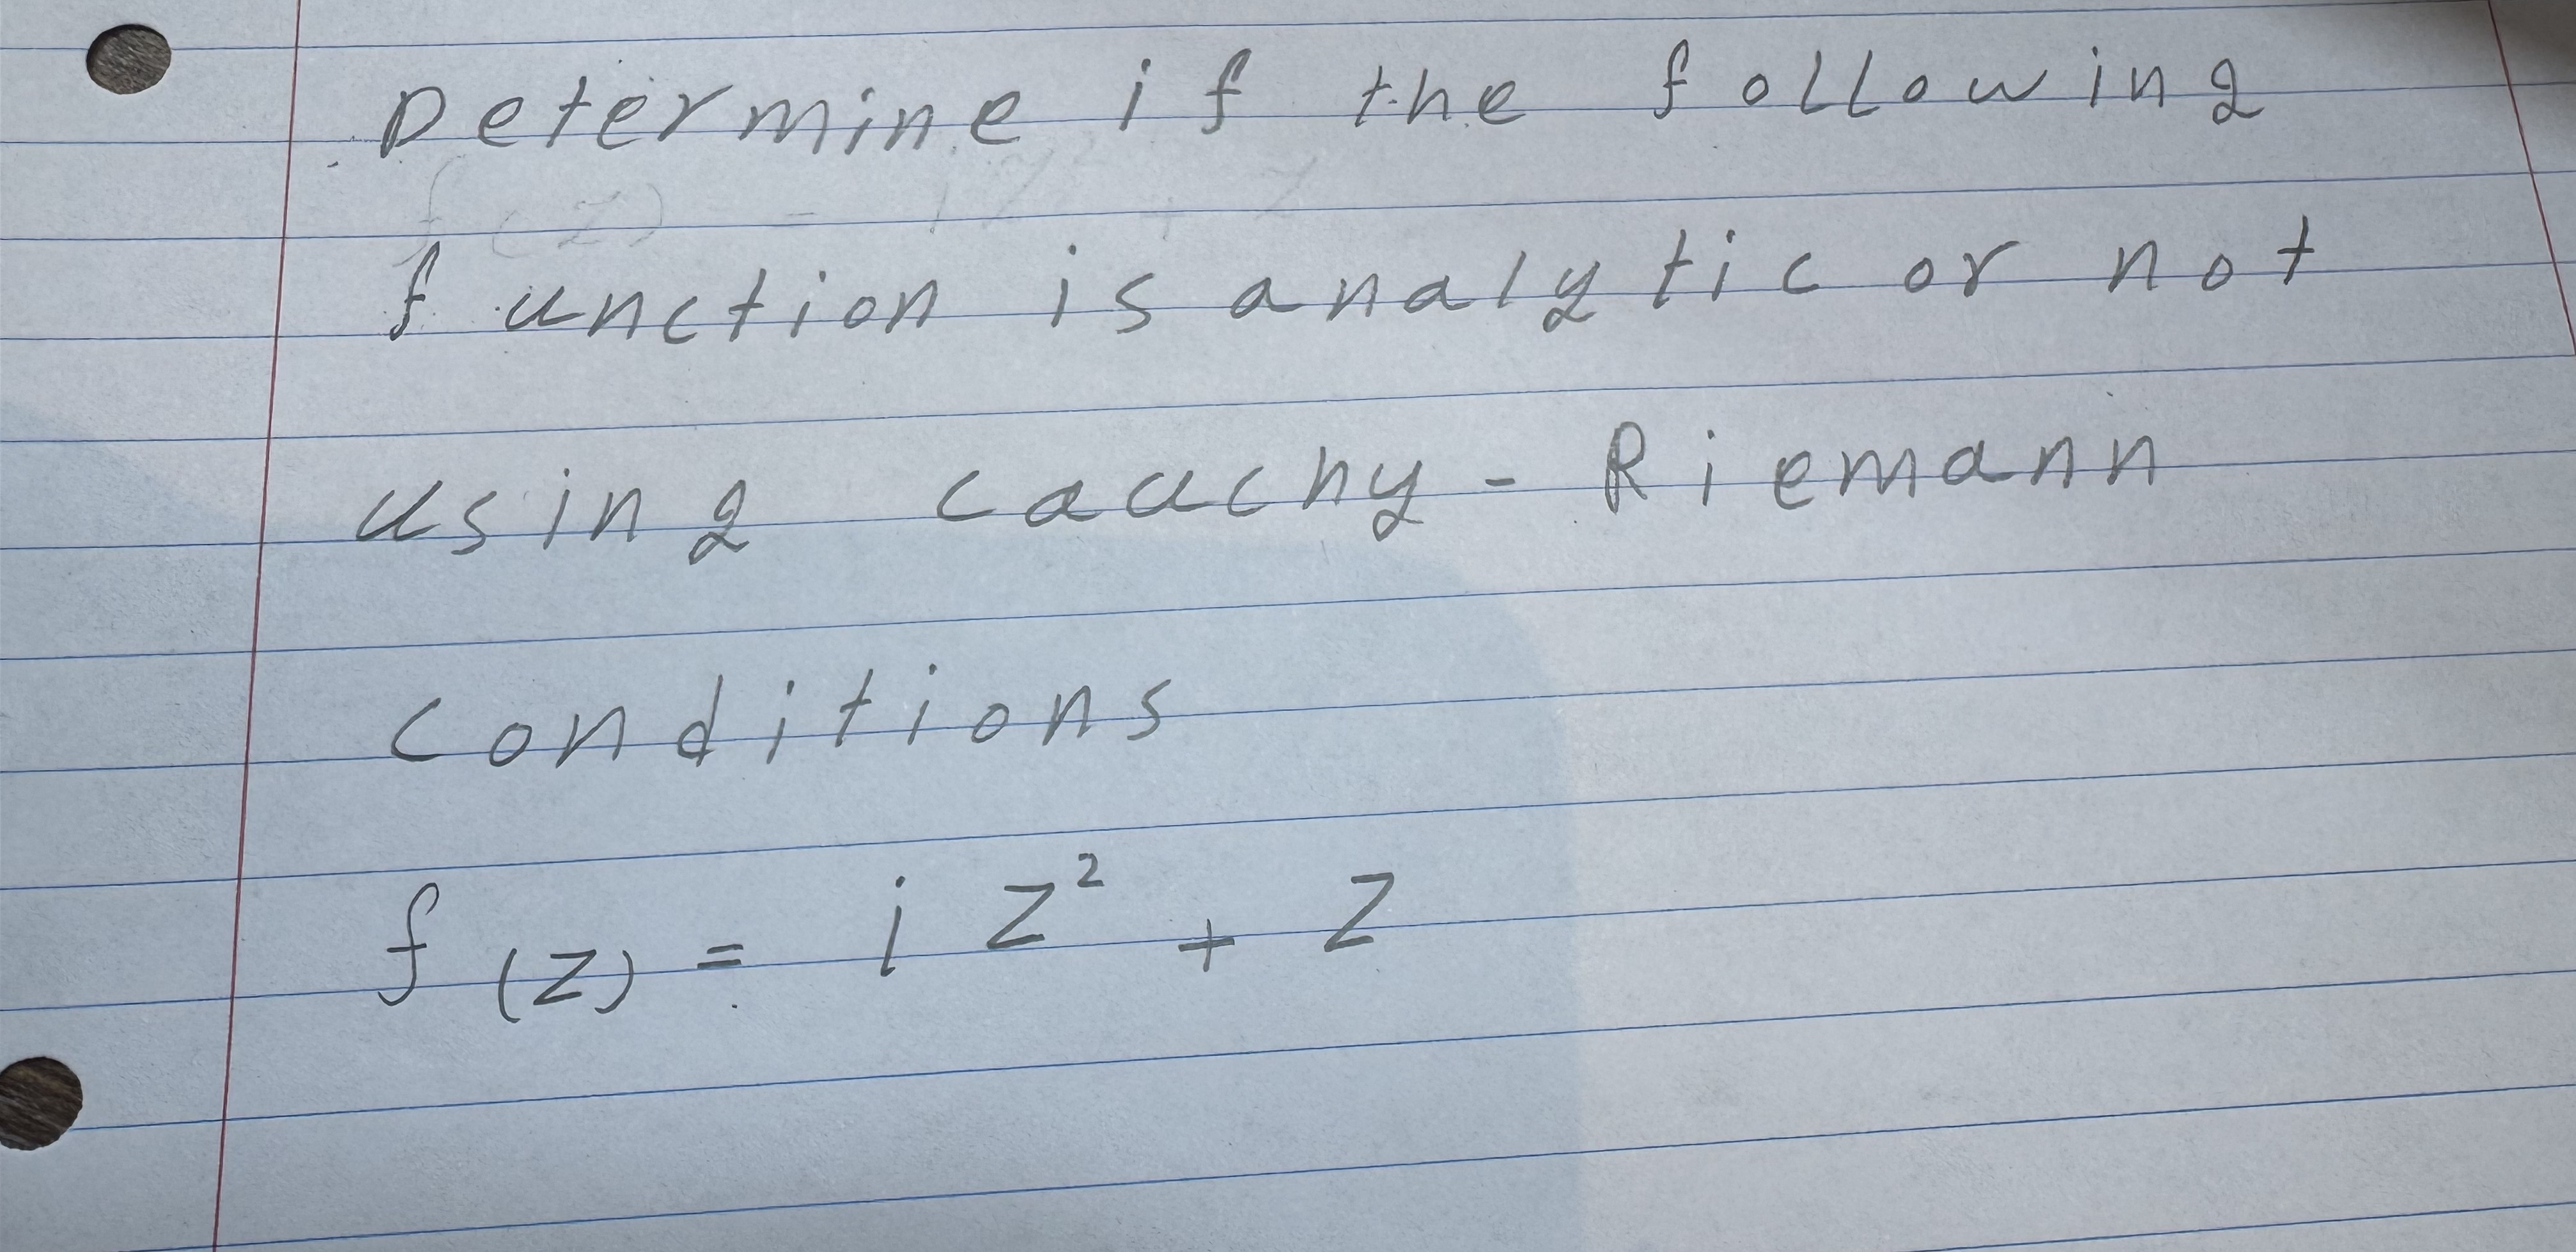 Determine if the following
function is analytic or not
using cauchy - Riemann
conditions
f(z) = i z² + z